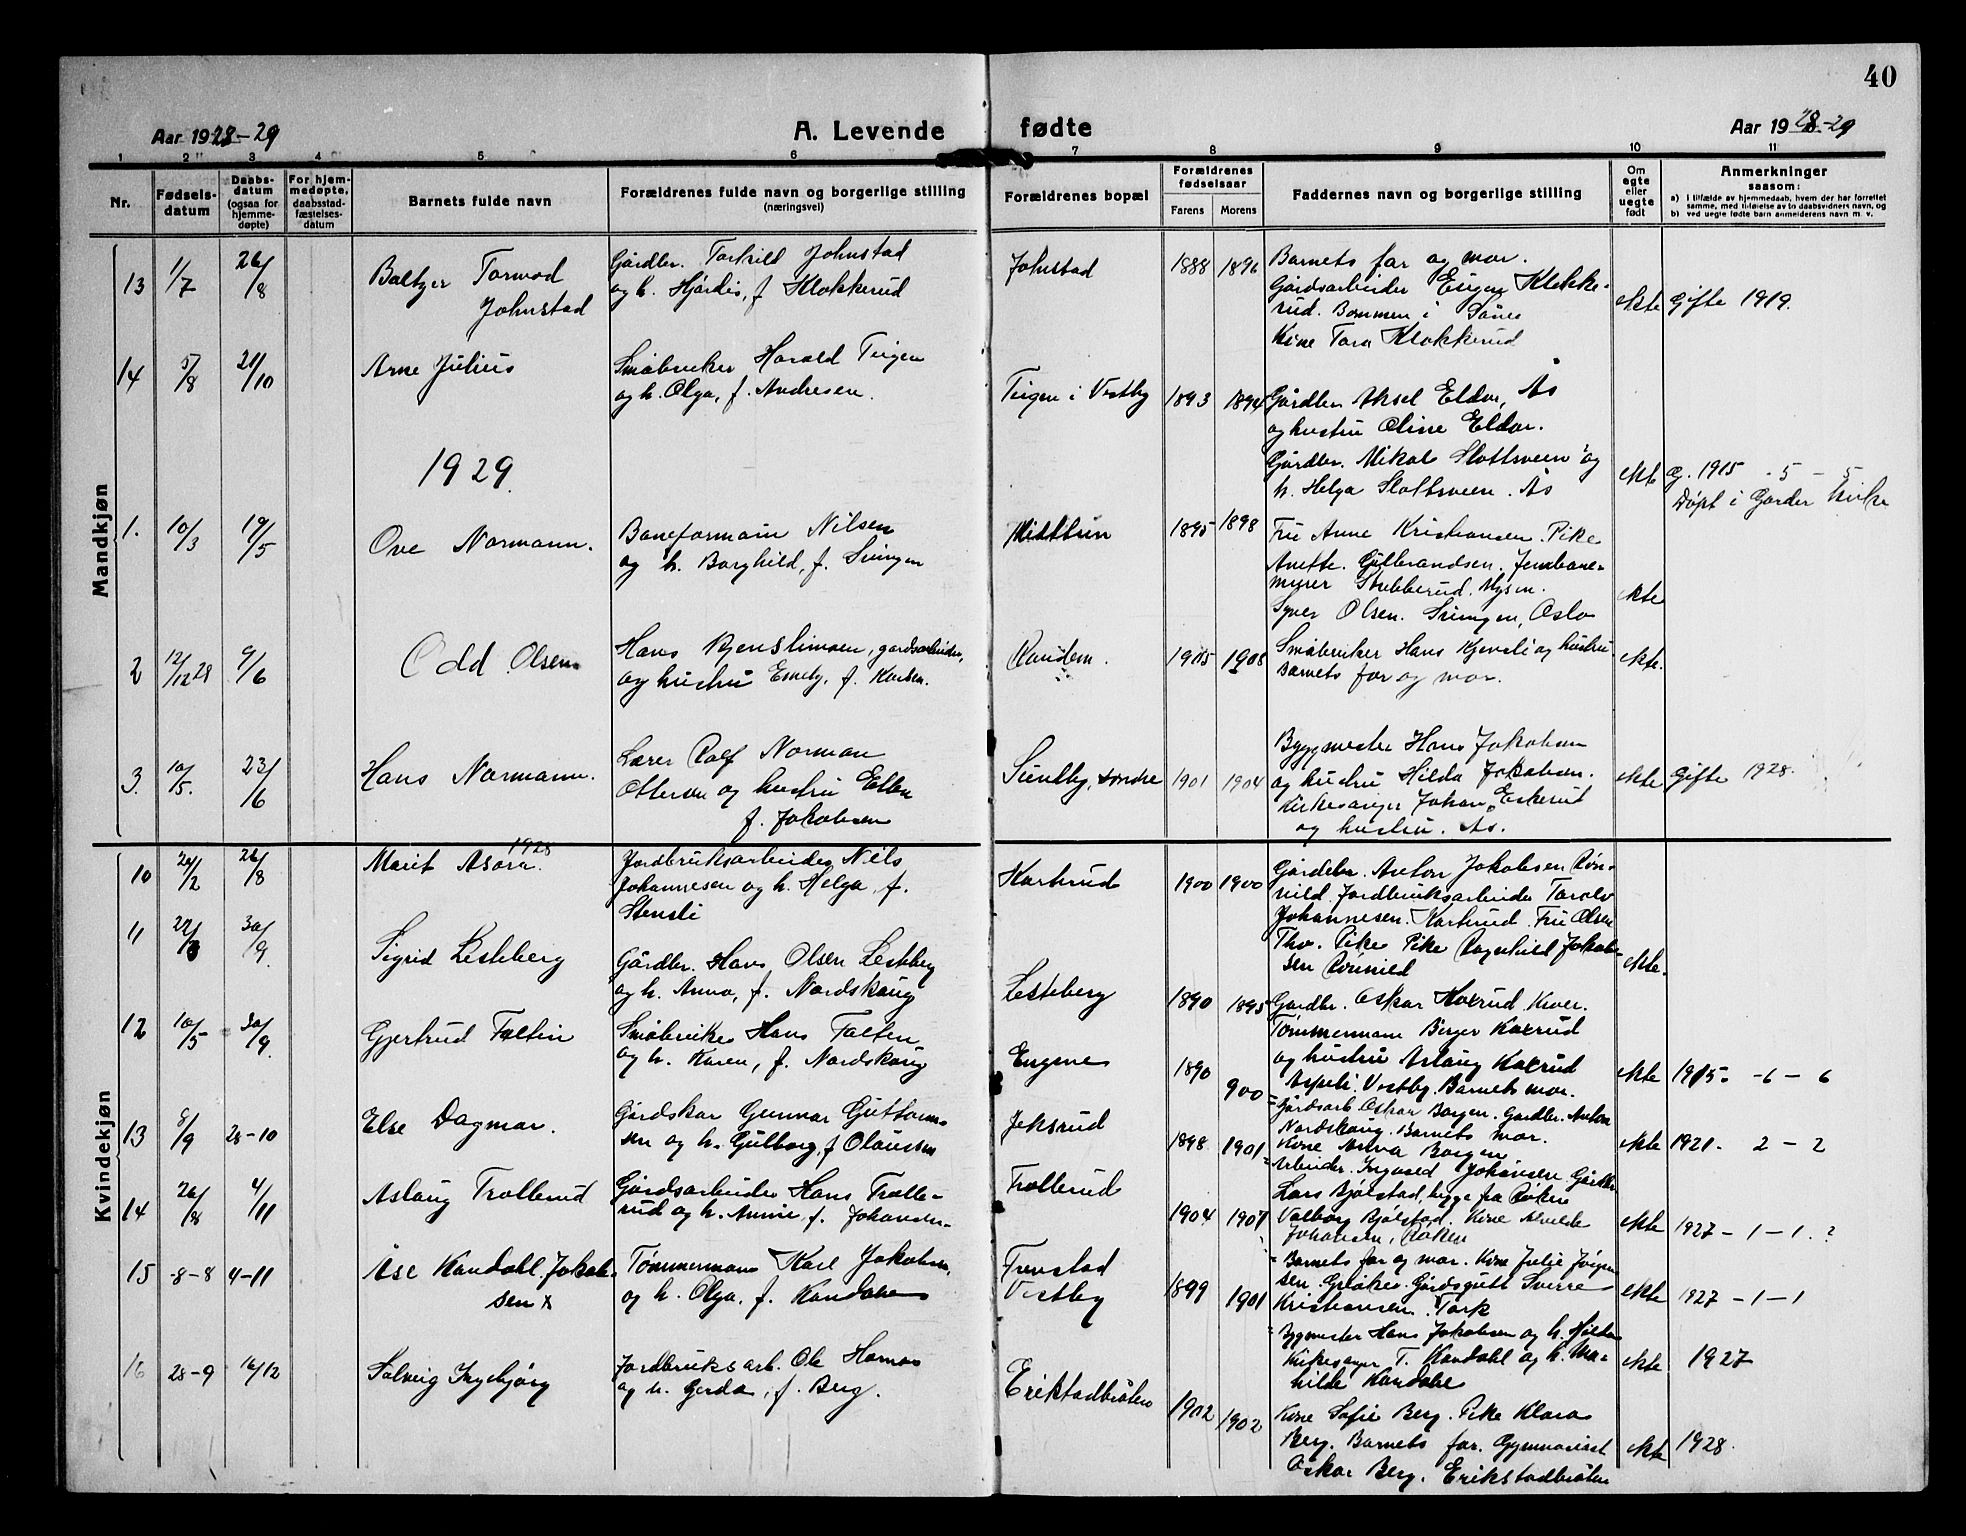 40
Aar 1928-29
A. Levende fødte
Aar 1928-29
1 2 3 4 5 6 7 8 9 10 11
Nr.
Fødsels-
datum
Daabs-
datum
(ogsaa for
hjemme-
døpte)
For hjem-
medøpte,
daabsstad-
fæstelses-
datum
Barnets fulde navn
Forældrenes fulde navn og borgerlige stilling
(næringsvei)
Forældrenes bopæl
Forældrenes
fødselsaar
Farens Morens
Faddernes navn og borgerlige stilling
Om
egte
eller
uegte
født
Anmerkninger
saasom:
a) I tilfælde av hjemmedaab, hvem der har forrettet
samme, med tilføielse av to daabsvidners navn, og
b) ved uegte fødte barn anmelderens navn m. v.
Mandkjøn
13 1/7 26/8
Baltzer Tormod
Johnstad
Gårdbr. Torkild Johnstad
og h. Hjørdis, f. Klokkerud
Johnstad
1888 1896
Barnets far og mor.
Gårdsarbeider Eugen Klokke-
rud. Bommen i Såner
Kone Tora Klokkerud
ekte
Gifte 1919.
14 5/8 21/10
Arne Julius
Småbruker Harald Teigen
og h. Olga, f. Andresen.
Teigen i Vestby
1893 1894
Gårdbr. Aksel Eldor, Ås
og hustru Oline Eldor.
Gårdbr. Mikal Slottsveen og
h. Helga Slottsveen. Ås
ekte
G. 1915 - 5 - 5
Døpt i Garder kirke
1929
1. 10/3 19/5
Ove Normann.
Baneformann Nilsen
og h. Borghild, f. Svingen
1895 1898
Fru Anne Kristiansen. Pike
Anette Gulbrandsen. Jernbane-
murer Stubberud. Mysen.
Syver Olsen. Svingen, Oslo
ekte
2 12/12 28 9/6
Odd Olsen
Hans gårdsarbeider,
og hustru Emely, f. Karlsen.
Randem.
1905 1908
Småbruker Hans Kjensli og hustru
Barnets far og mor.
ekte.
3. 10/5. 23/6
Hans Normann.
Lærer Rolf Norman
Ottersen og hustru Ellen
f. Jakobsen
Sundby, søndre
1901 1904
Byggmester Hans Jakobsen
og hustru Hilda Jakobsen.
Kirkesanger Johan Eskerud
og hustru. Ås.
ekte
Gifte 1928.
Kvindekjøn
1928
10 20/2 26/8
Marit Asora.
Jordbruksarbeider Niels
Johannesen og h. Helga f.
Stensli
Kortrud
1900 1900
Gårdbr. Anton Jakobsen Røn-
nild. Jordbruksarbeider Torolv
Johannesen. Kortrud. Fru Olsen
Tho. Pike Pike Ragnhild Jakob-
sen Rønnild
ekte.
11 30/9.
Sigrid Lesteberg
Gårdbr. Hans Olsen Lestberg
og h. Anna, f. Nordskaug
Lesteberg
1890 1895
Gårdbr. Oskar Kaxrud. Kroer.
Tømmermann Birger Kaxrud
og hustru Aslaug Kaxrud
Aspeli. Vestby. Barnets mor.
ekte
1915. - 6 - 6
12 10/5 30/9.
Gjertrud Faltin
Småbruker Hans Falten
og h. Karen, f. Nordskaug
Engene
1890 900
Gårdsarb Oskar Borgen. Gårdbr. Anton
Nordskaug. Barnets mor.
Kone Anna Borgen
ekte
1921. 2 - 2
13 8/9 28-10
Else Dagmar.
Gårdskar Gunnar Guttorm-
sen og h. Gulborg, f Olaussen
Jeksrud
1898 1901
Arbeider. Ingvald Johansen Gårdbr.
Lars Bjølstad, begge fra Røken
Valborg Bjølstad. Kone Alvilde
Johansen, Røken
ekte
1927 - 1 - 1. ?
14 26/8 4/11
Aslaug Trollerud
Gårdsarbeider Hans Trolle-
rud og h. Annie f. Johansen-
Trollerud
1904 1907
Barnets far og mor. Kone Julie Jørgen-
sen. Gårdsgutt Sverre
Kristiansen. Tork
ekte
1927 - 1 - 1
15 -8-8 4-11
Åse Kandahl. Jakob-
sen x
Tømmermann Karl Jakobsen,
og h. Olga, f. Kandahl
Trustad
Vestby
1899 1901
Byggmester Hans Jakobsen og h. Hilda
Kirkesanger T. Kandahl og h. Ma-
hilde Kandahl
ekte
1927
16 28-9 16/12
Solveig Ingebjørg
Jordbruksarb. Ole Hornes
og h. Gerda, f. Berg.
Erikstadbråten
1902 1902
Kone Sofie Berg. Pike Klara
Berg. Barnets far. Gymnasiast
Oskar Berg. Erikstadbråten
ekte
1928.